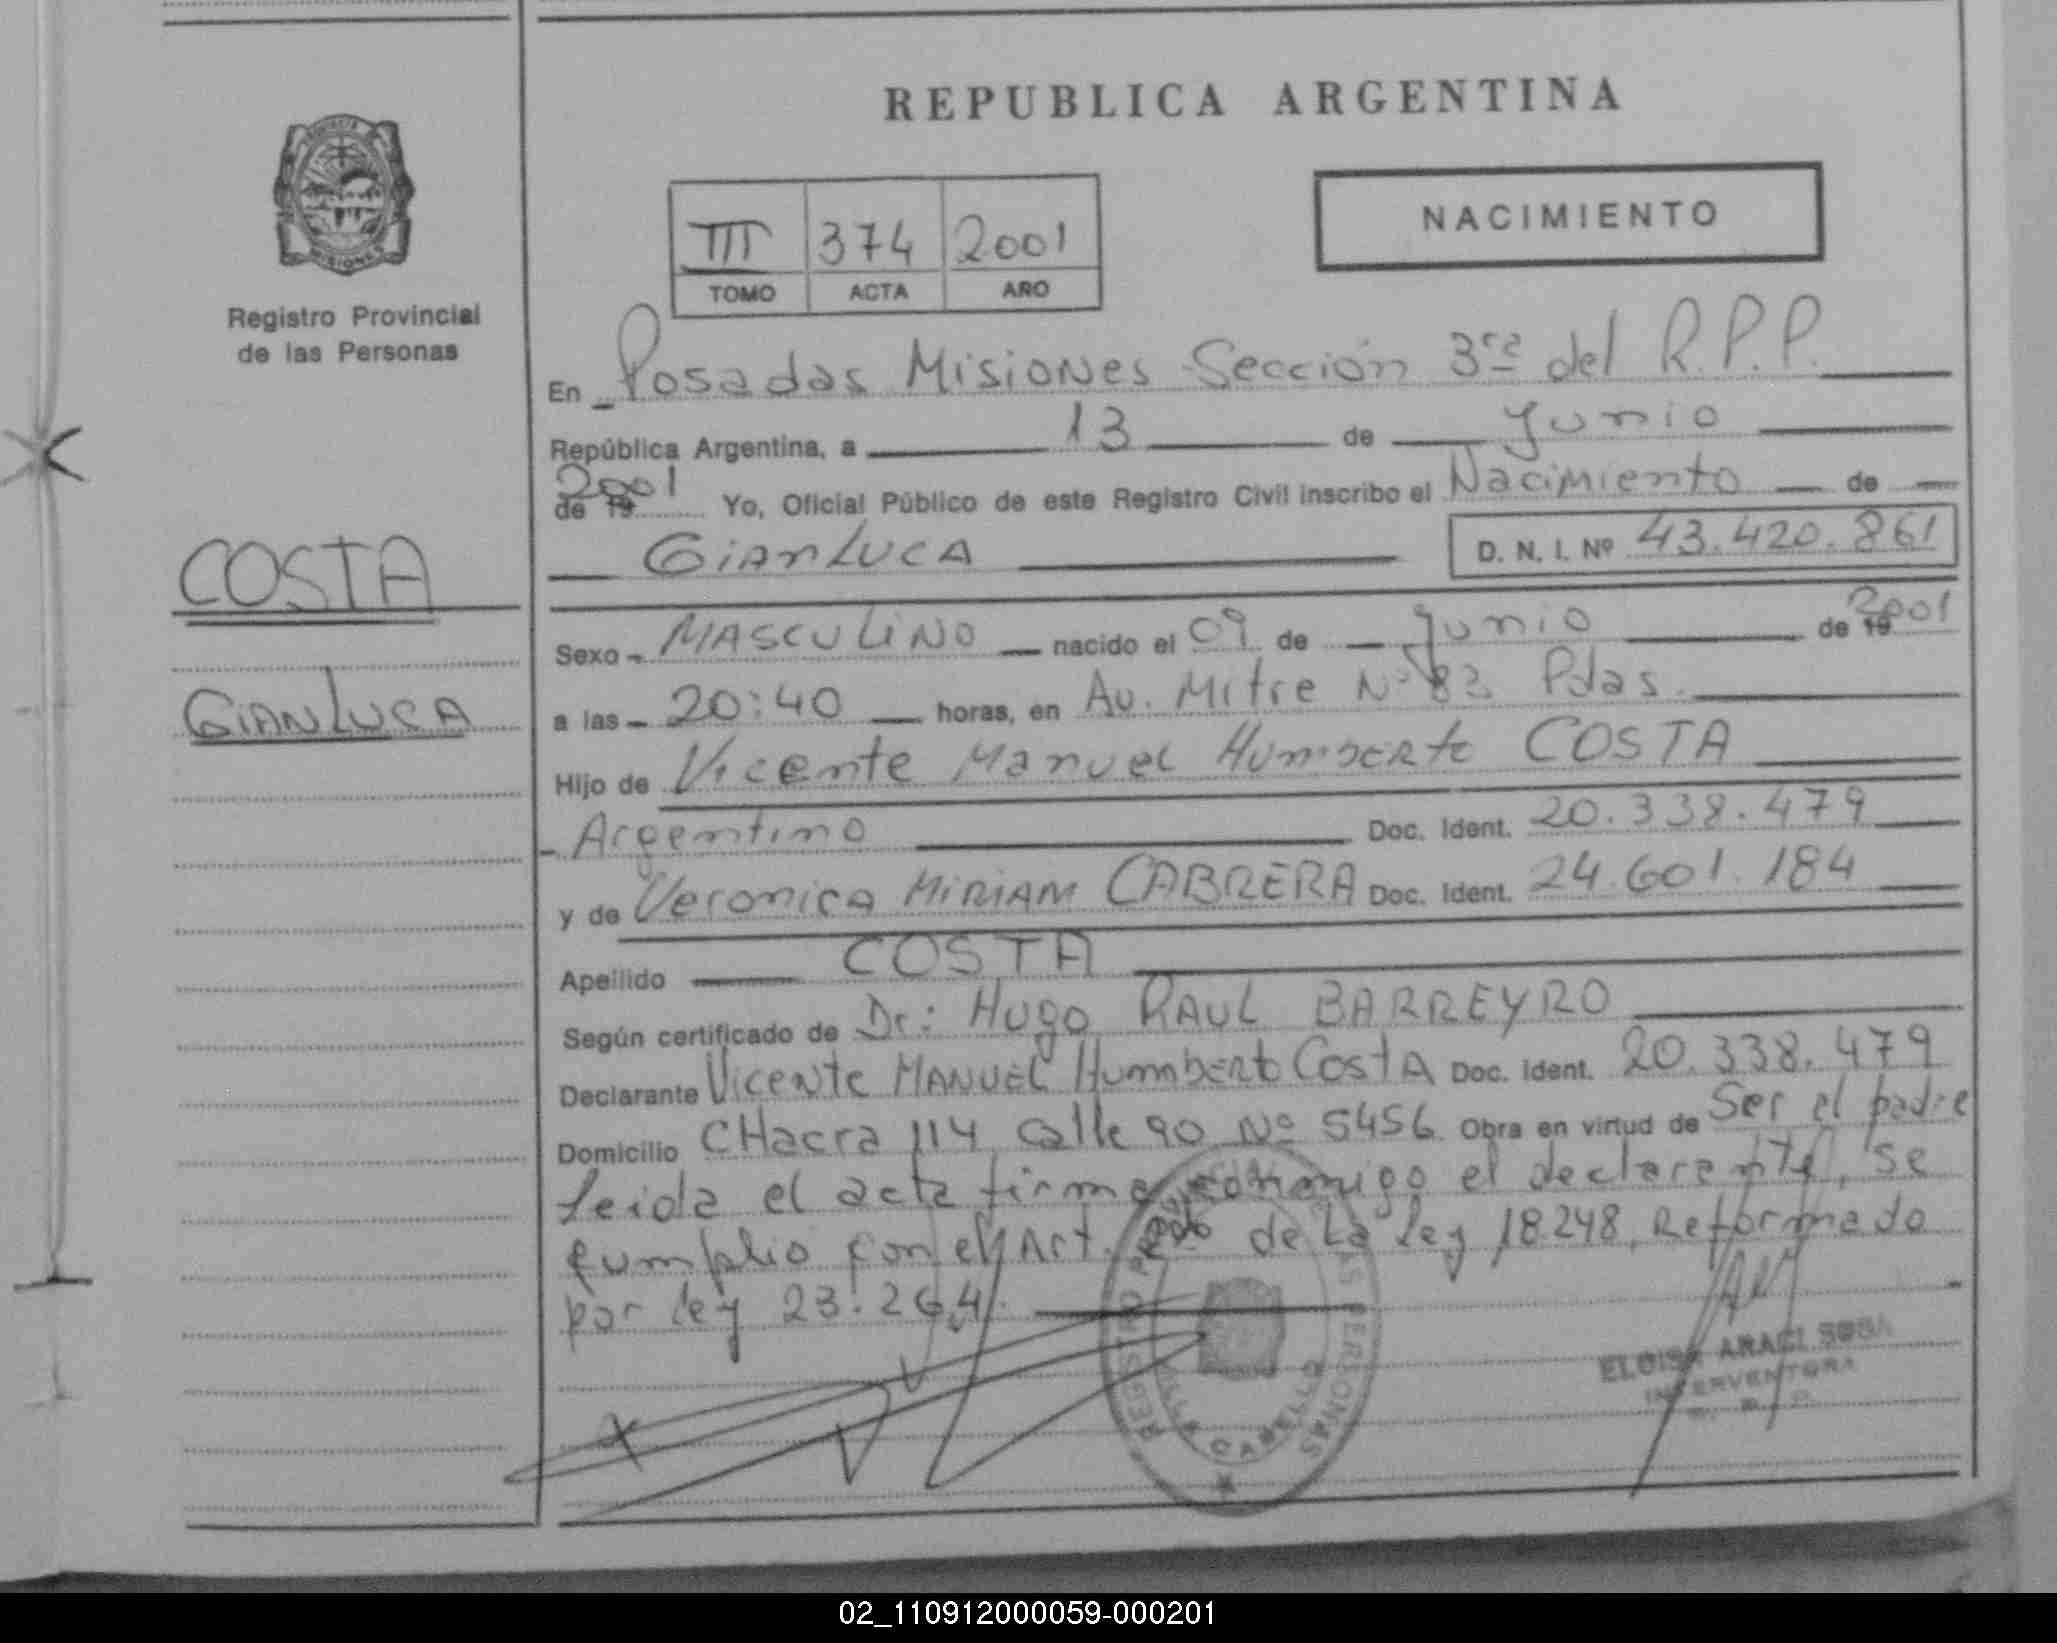 REPUBLICA ARGENTINA
PROVINCIA
MISIONES
Registro Provincial
de las Personas
III 374 2001
TOMO ACTA ARO
NACIMIENTO
En Posadas Misiones Sección 3ra del R.P.P.
República Argentina, a 13 de Junio
2001
de 19 Yo, Oficial Público de este Registro Civil inscribo el Nacimiento de
GianLUCA D. N. I. Nº 43.420.861
COSTA
GIANLUCA
Sexo MASCULINO nacido el 09 de Junio de 19 2001
a las 20:40 horas, en Av. Mitre Nº 83 Pdas.
Hijo de Vicente Manuel Humberto COSTA
Argentino Doc. Ident. 20.338.479
y de Veronica MIRIAM CABRERA Doc. Ident. 24.601.184
Apellido COSTA
Según certificado de Dr: Hugo RAUL BARREYRO
Declarante Vicente MANUEL Humberto CostA Doc. Ident. 20.338.479
Domicilio CHacra 114 calle 90 Nº 5456 Obra en virtud de Ser el padre
Leida el acta firma conmigo el declarante, se
cumplio con el Art. de La Ley 18.248, Reformado
por Ley 23.264.
REGISTRO PROVINCIAL DE LAS PERSONAS
CABELLO
ELOISA ARACI SOSA
INTERVENTORA
02_110912000059-000201